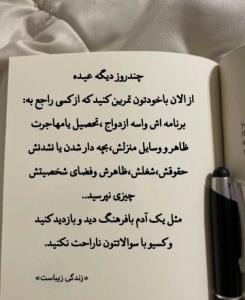 چندروز دیگه عیده
از الان باخودتون تمرین کنید که ازکسی راجع به:
برنامه اش واسه ازدواج ،تحصیل یامهاجرت
ظاهر و وسایل منزلش،بچه دار شدن یا نشدنش
حقوقش،شغلش،ظاهرش وفضای شخصیتش
چیزی نپرسید..
مثل یک آدم بافرهنگ دید و بازدیدکنید
وکسیو با سوالاتتون ناراحت نکنید.
«زندگی زیباست»